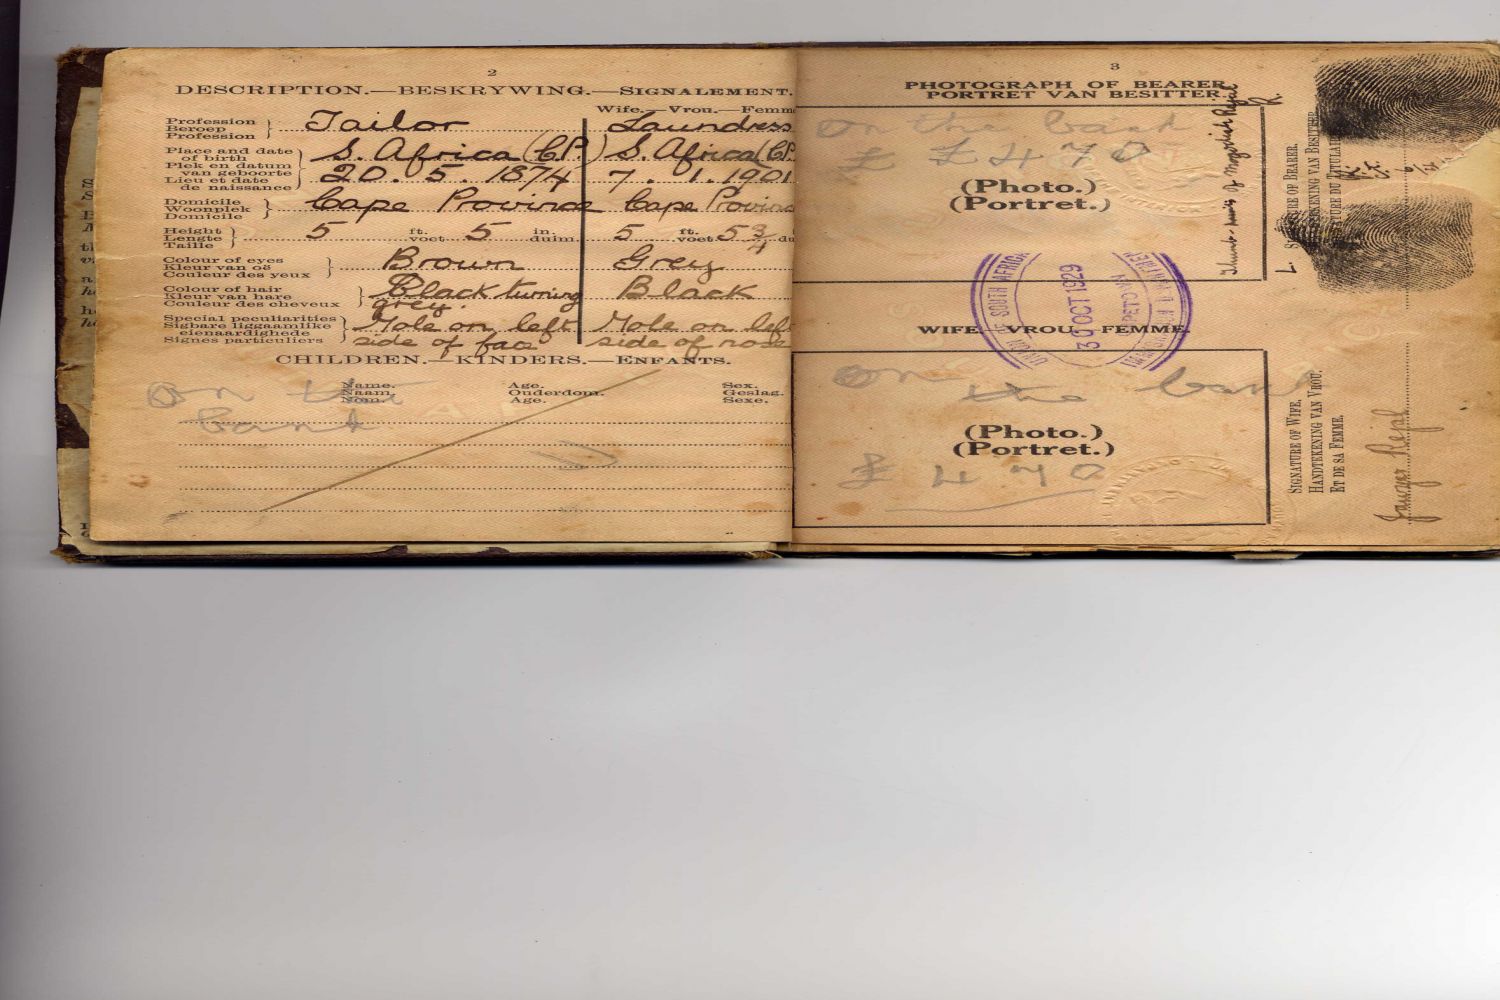 2
DESCRIPTION.—BESKRYWING.—SIGNALEMENT.
Wife.—Vrou.—Femm
Profession
Beroep
Profession
Tailor
Laundress
Place and date
of birth
Plek en datum
van geboorte
Lieu et date
de naissance
S. Africa (C.P.) S. Africa (C.P.
20. 5. 1874 7. 1. 1901
Domicile
Woonplek
Domicile
Cape Province Cape Provinc
Height
Lengte
Taille
5 ft. voet 5 in. duim. 5 ft. voet 5 3/4 du
Colour of eyes
Kleur van oë
Couleur des yeux
Brown Grey
Colour of hair
Kleur van hare
Couleur des cheveux
Black turning grey Black
Special peculiarities
Sigbare liggaamlike
eienaardighede
Signes particuliers
Mole on left Mole on left
side of face side of nose
CHILDREN.—KINDERS.—ENFANTS.
Name. Age. Sex.
Naam. Ouderdom. Geslag.
Nom. Age. Sexe.
On the
bank
3
PHOTOGRAPH OF BEARER
PORTRET VAN BESITTER.
On the bank
£ £ 470
(Photo.)
(Portret.)
UNION OF SOUTH AFRICA
30 OCT 1929
WIFE. VROU. FEMME.
On the bank
(Photo.)
(Portret.)
£ 470
Thumb-prints of Mogodien Rejal
R.
L.
SIGNATURE OF BEARER.
HANDTEKENING VAN BESITTER
SIGNATURE DU TITULAIRE
SIGNATURE OF WIFE,
HANDTEKENING VAN VROU,
ET DE SA FEMME.
Rejal